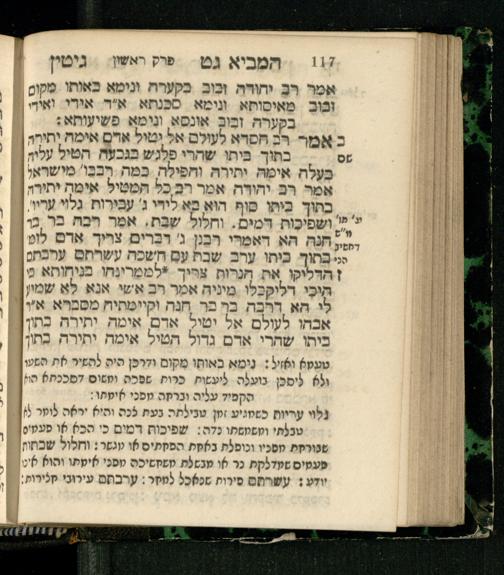 117 המביא גט פרק ראשון גיטין
אמר רב יהודה זבוב בקערה ונימא באותו מקום
זבוב מאיסותא ונימא סכנתא א״ד אידי ואידי
בקערה זבוב אונסא ונימא פשיעותא:
ב אמר רב חסדא לעולם אל יטיל אדם אימה יתירה
שם בתוך ביתו שהרי פלגש בגבעה הטיל עליה
בעלה אימה יתירה והפילה כמה רבבו׳ מישראל
אמר רב יהודה אמר רב כל המטיל אימה יתירה
בתוך ביתו סוף הוא בא לידי ג׳ עבירות גלוי עריו׳.
ושפיכות דמים. וחלול שבת. אמר רבה בר בר
חנה הא דאמרי רבנן ג׳ דברים צריך אדם לומ׳
בתוך ביתו ערב שבת עם חשכה עשרתם ערבתם
ז הדליקו את הנרות צריך *לממרינהו בניחותא כי
היכי דליקבלו מיניה אמר רב אשי אנא לא שמיע
לי הא דרבה בר בר חנה וקיימתיה מסברא א״ר
אבהו לעולם אל יטיל אדם אימה יתירה בתוך
ביתו שהרי אדם גדול הטיל אימה יתירה בתוך
טעמא ואזיל: נימא באותו מקום ודרכן היה להשיר את השער
ולא ליסכן בועלה ליעשות כרות שפכה ומשום דסכנתא הוא
הקפיד עליה וברחה מפני אימתו:
גלוי עריות כשמגיע זמן טבילתה בעת לנה והיא יראה לומר לא
טבלתי ומשמשתו נדה: שפיכות דמים כי הכא או פעמים
שבורחת מפניו ונופלת באחת הפחתים או מגשר: וחלול שבתות
פעמים שמדלקת נר או מבשלת משחשיכה מפני אימתו והוא אינו
יודע: עשרתם פירות שנאכל למחר: ערבתם עירובי חלירות: